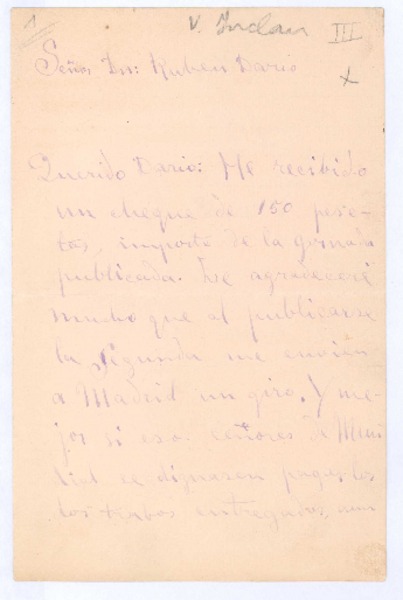 1
V. Inclan
III
x
Señor Dn: Ruben Dario
Querido Dario: He recibido
un cheque de 150 pese-
tas, importe de la jornada
publicada. Le agradeceré
mucho que al publicarse
la segunda me envíen
a Madrid un giro. Y me-
jor si esos señores de Mun
dial se dignasen pagar los
dos entregados, aun